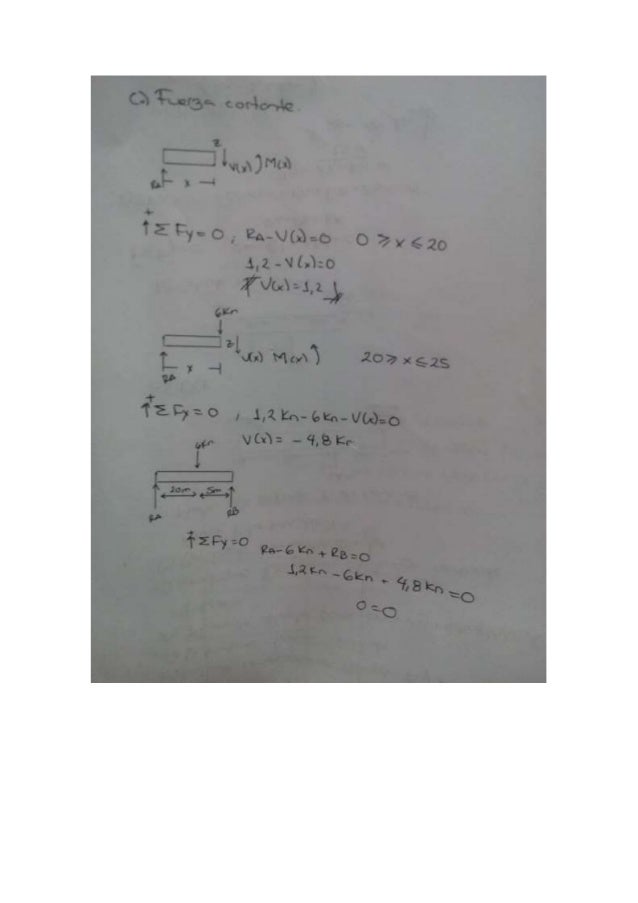 C) Fuerza cortante.
z
V(x) M(x)
RA x
+
↑ΣFy=0, RA-V(x)=0 0 ⩾ x ⩽ 20
1,2-V(x)=0
V(x)=1,2
6Kn
z
V(x) M(x) 20 ⩾ x ⩽ 25
RA x
+
↑ΣFx=0, 1,2Kn-6Kn-V(x)=0
V(x)= -4,8Kn
6Kn
20m 5m
RA RB
+
↑ΣFy=0 RA-6Kn+RB=0
1,2Kn-6Kn+4,8Kn=0
0=0